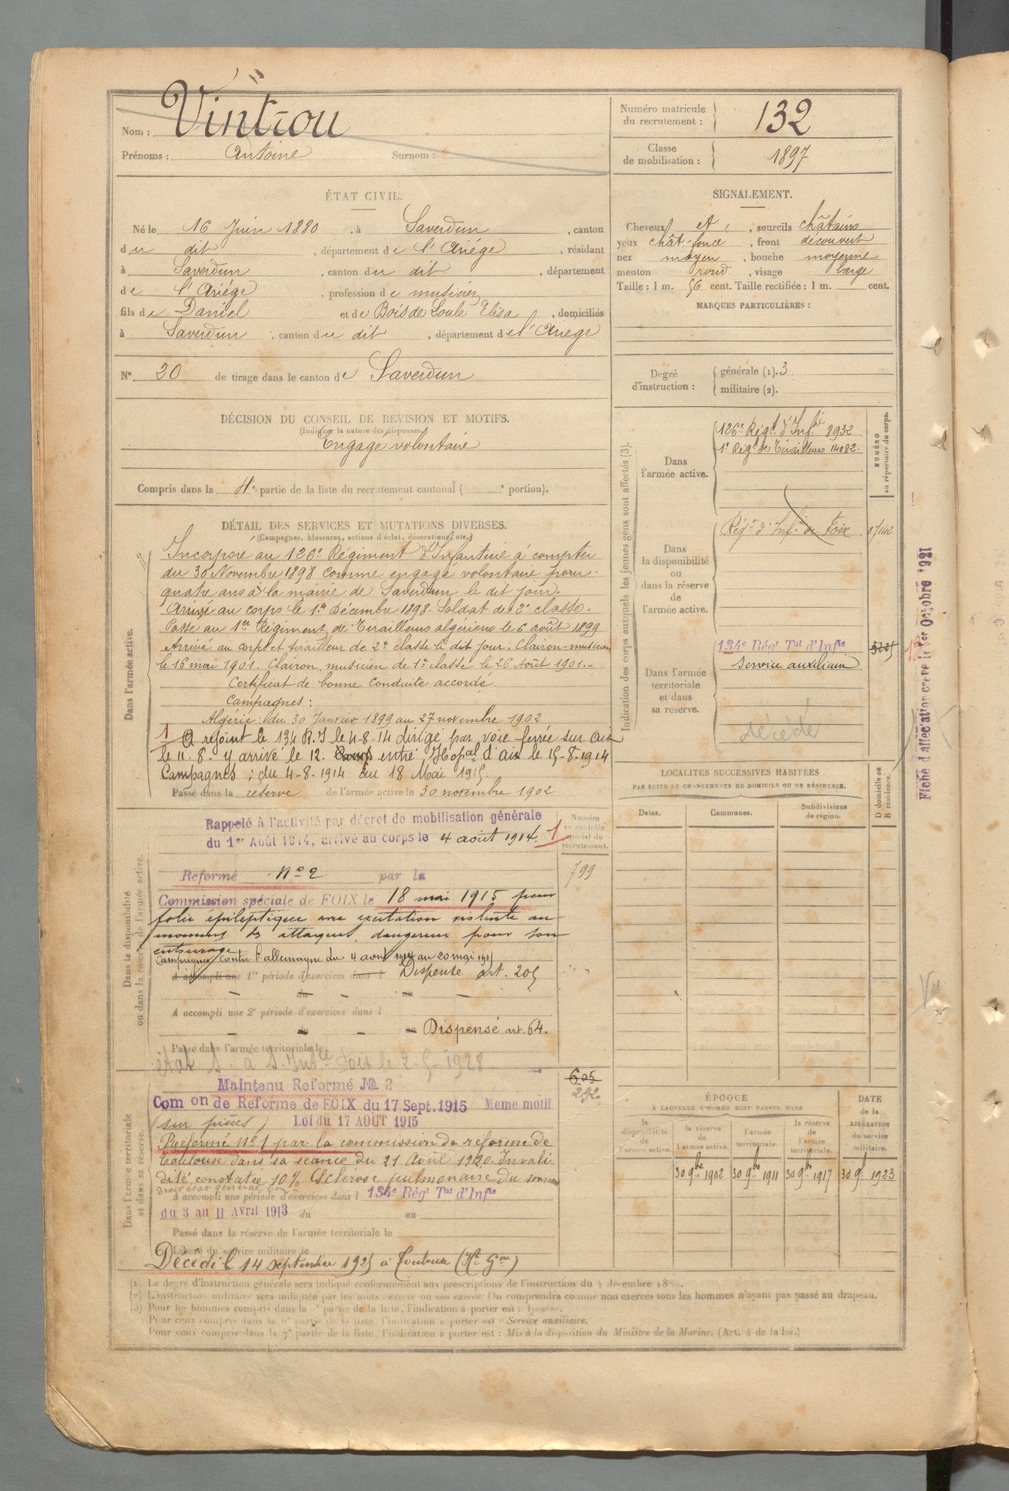 Nom : Vintrou
Prénoms : Antoine Surnom :
Numéro matricule du recrutement : 132
Classe de mobilisation : 1897
ÉTAT CIVIL.
Né le 16 Juin 1880, à Saverdun, canton
du dit, département de l'Ariége, résidant
à Saverdun, canton du dit, département
de l'Ariége, profession de musicien
fils de Daniel et de Bois de Loule Elisa, domiciliés
à Saverdun, canton du dit, département de l'Ariege
N° 20 de tirage dans le canton de Saverdun
SIGNALEMENT.
Cheveux et, sourcils châtains
yeux chât. foncé, front découvert
nez moyen, bouche moyenne
menton rond, visage large
Taille : 1 m. 56 cent. Taille rectifiée : 1 m. cent.
MARQUES PARTICULIÈRES :
Degré d'instruction : générale (1). 3
militaire (2).
DÉCISION DU CONSEIL DE REVISION ET MOTIFS.
(Indiquer la nature des dispenses)
Engagé volontaire
Compris dans la 4e partie de la liste du recrutement cantonal ( e portion).
DÉTAIL DES SERVICES ET MUTATIONS DIVERSES.
(Campagnes, blessures, actions d'éclat, décorations, etc.)
Dans l'armée active.
Incorporé au 126e Régiment d'Infanterie à compter
du 30 Novembre 1898 comme engagé volontaire pour
quatre ans à la mairie de Saverdun le dit jour.
Arrivé au corps le 1er Décembre 1898. Soldat de 2e classe.
Passé au 1er Régiment de Tirailleurs algériens le 6 août 1899
Arrivé au corps et tirailleur de 2e classe le dit jour. Clairon-musicien
le 16 mai 1901. Clairon, musicien de 1e classe le 26 août 1901.
Certificat de bonne conduite accordé
Campagnes :
Algérie : du 30 Janvier 1899 au 27 novembre 1902
1 A rejoint le 134 R.I le 4-8-14 dirigé par voie ferrée sur Aix
le 11-8- y arrivé le 12. entré Hopal d'Aix le 15-8-1914
Campagnes : du 4-8-1914 au 18 Mai 1915
Passé dans la réserve de l'armée active le 30 novembre 1902
Dans la disponibilité ou dans la réserve de l'armée active.
Rappelé à l'activité par décret de mobilisation générale
du 1er Août 1914, arrivé au corps le 4 aout 1914. 1
Numéro au contrôle spécial du recrutement.
799
Reformé N° 2 par la
Commission spéciale de FOIX le 18 mai 1915 pour
folie épileptique avec excitation violente au
moment des attaques, dangereux pour son
entourage
Campagnes contre l'allemagne du 4 aout 1914 au 20 mai 1915
A accompli une 1re période d'exercices dans l Dispensé art. 205
A accompli une 2e période d'exercices dans l
Dispensé art. 64.
Passé dans l'armée territoriale le
Dans l'armée territoriale et dans sa réserve.
605
292
Maintenu Reformé N° 2
Com on de Reforme de FOIX du 17 Sept. 1915 Meme motif
(sur pièces) Loi du 17 AOUT 1915
Reformé n° 1 par la commission de reforme de
Toulouse dans sa séance du 21 Avril 1920. Invali
dité constatée 10% Sclérose pulmonaire du sommet
A accompli une période d'exercices dans l 134e Régt Tal d'Infie
du 3 au 11 Avril 1913 du au
Passé dans la réserve de l'armée territoriale le
Libéré du service militaire le
Décédé le 14 septembre 1925 à (Hte Gne)
Indication des corps auxquels les jeunes gens sont affectés (3).
NUMÉRO au répertoire du corps.
Dans l'armée active.
126e Régt d'Infie 8932
1er Régt de Tirailleurs 14082
Dans la disponibilité ou dans la réserve de l'armée active.
Régt d'Infie de Foix
Dans l'armée territoriale et dans sa réserve.
134e Régt Tal d'Infie
Service auxiliaire
décédé
Fiche d'affectation créée le 1er Octobre 1921
LOCALITÉS SUCCESSIVES HABITÉES
PAR SUITE DE CHANGEMENTS DE DOMICILE OU DE RÉSIDENCE.
Dates. Communes. Subdivisions de région. D domicile ou R résidence.
ÉPOQUE
À LAQUELLE L'HOMME DOIT PASSER DANS
DATE de la LIBÉRATION du service militaire.
la disponibilité de l'armée active. la réserve de l'armée active. l'armée territoriale. la réserve de l'armée territoriale.
30 9bre 1902 30 9bre 1911 30 9bre 1917 30 9bre 1923
(1) Le degré d'instruction générale sera indiqué conformément aux prescriptions de l'instruction du 4 décembre 1889.
(2) L'instruction militaire sera indiquée par les mots : exercé ou non exercé. On comprendra comme non exercés tous les hommes n'ayant pas passé au drapeau.
(3) Pour les hommes compris dans la e partie de la liste, l'indication à porter est : Ajourné.
Pour ceux compris dans la 6e partie de la liste, l'indication à porter est : Service auxiliaire.
Pour ceux compris dans la 7e partie de la liste, l'indication à porter est : Mis à la disposition du Ministre de la Marine. (Art. 4 de la loi.)